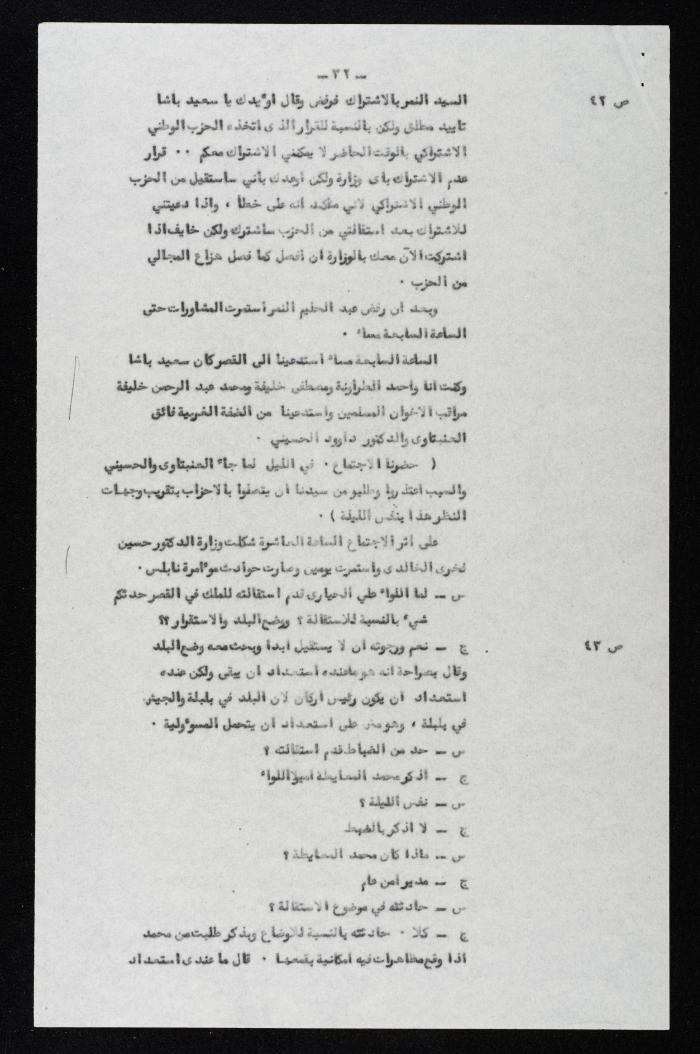 - ٣٢ -
ص ٤٢
السيد النمر بالاشتراك فرفض وقال اوءيدك يا سعيد باشا
تاييد مطلق ولكن بالنسبة للقرار الذى اتخذه الحزب الوطني
الاشتراكي بالوقت الحاضر لا يمكنني الاشتراك معكم ٠٠ قرار
عدم الاشتراك باى وزارة ولكن اوعدك بأني ساستقيل من الحزب
الوطني الاشتراكي لاني متأكد انه على خطأ ، واذا دعيتني
للاشتراك بعد استقالتي من الحزب ساشترك ولكن خايف اذا
اشتركت الآن معك بالوزارة ان افصل كما فصل هزاع المجالي
من الحزب ٠
وبعد ان رفض عبد الحليم النمر أستمرت المشاورات حتى
الساعة السابعة مساء ٠
الساعة السابعة مساء استدعينا الى القصر كان سعيد باشا
وكنت انا واحمد الطراونة ومصطفى خليفة ومحمد عبد الرحمن خليفة
مراقب الاخوان المسلمين واستدعينا من الضفة الغربية فائق
العنبتاوى والدكتور داوود الحسيني ٠
( حضرنا الاجتماع ٠ في الليل لما جاء العنبتاوى والحسيني
والصيب اعتذروا وطلبو من سيدنا ان يتصلوا بالاحزاب بتقريب وجهات
النظر هذا بنفس الليلة ) ٠
على اثر الاجتماع الساعة العاشرة شكلت وزارة الدكتور حسين
فخرى الخالدى واستمرت يومين وصارت حوادث موءامرة نابلس ٠
س - لما اللواء علي الحيارى قدم استقالته للملك في القصر حدثكم
شيء بالنسبة للاستقالة ؟ ووضع البلد والاستقرار ؟؟
ص ٤٣
ج - نعم ورجوته ان لا يستقيل ابدا وبحث معه وضع البلد
وقال بصراحة انه هو ماعنده استعداد ان يبقى ولكن عنده
استعداد ان يكون رئيس اركان لان البلد في بلبلة والجيش
في بلبلة ، وهو مش على استعداد ان يتحمل المسوءولية ٠
س - حد من الضباط قدم استقالته ؟
ج - اذكر محمد المعايطة اميرآاللواء
س - نفس الليلة ؟
ج - لا اذكر بالضبط
س - ماذا كان محمد المعايطة ؟
ج - مدير امن عام
س - حادثته في موضوع الاستقالة ؟
ج - كلا ٠ حادثته بالنسبة للاوضاع وبذكر طلبت من محمد
اذا وقع مظاهرات فيه امكانية بقمعها ٠ قال ما عندى استعداد